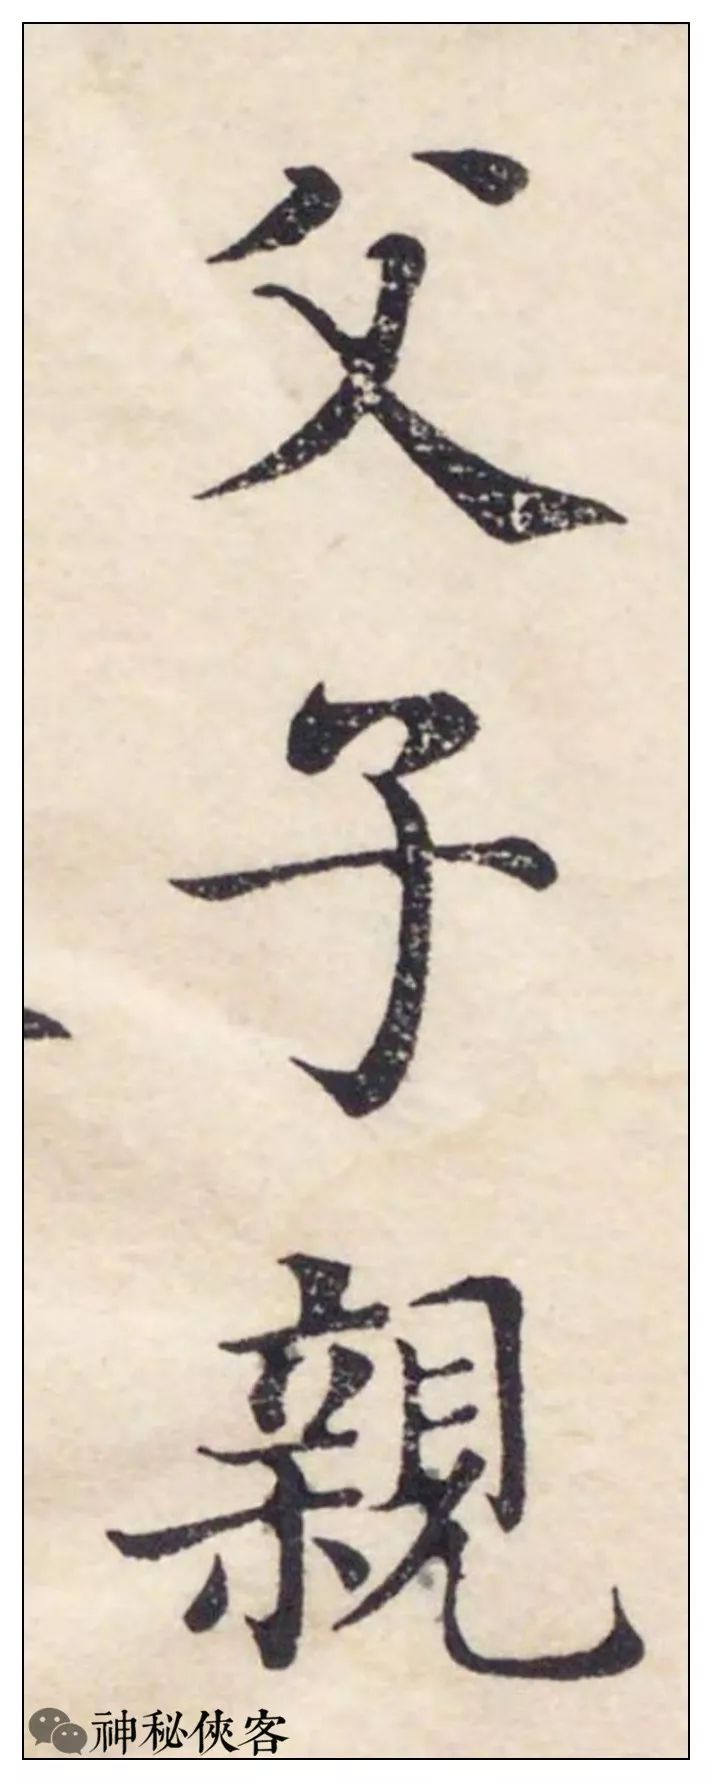 父子親
神秘俠客